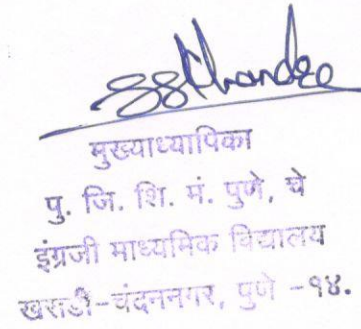 मुख्याध्यापिका
पु. जि. शि. मं. पुणे, चे
इंग्रजी माध्यमिक विद्यालय
खराडी-चंदननगर, पुणे -१४.